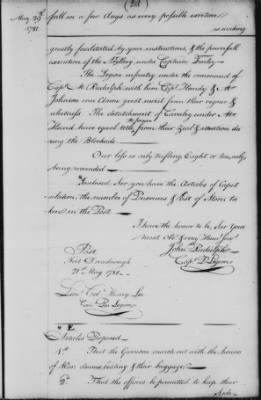 May 29th
1781.
shall in a few days as every possible exertion
is making
greatly facilitated by your instructions, & the powerfull
execution of the Artillery under Captain Finley
The Legion infantry under the command of
Capt. M. Rudolph with him Capt. Handy & Mr
Johnson can claim great merit from their vigour &
alertness. The detachment of Cavalry under Mr
Harrison have equal title, from their Zeal & exertion during
ring the Blockade.
Our loss is only trifling Eight or ten, only,
being wounded
Inclosed Sir you have the Articles of Capit
ulation, the number of Prisoners & List of Stores ta
ken in the Post
I have the honor to be, Sir Your
most Ob. & very Hum. Serv.
John Rudolph
Capt. P. Legion
Post
Fort Dreadnought
21st May 1781.
Lieu. Col. Henry Lee
Com. Par. Legion
Articles Proposed
1st That the Garrison march out with the honors
of War, drums beating & their baggage
2d That the officers be permitted to keep their